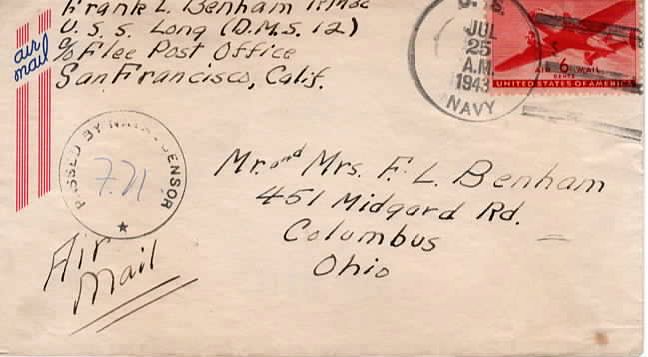 air
mail
Frank L. Benham
U. S. S. Long (D.M.S. 12)
c/o Fleet Post Office
San Francisco, Calif.
U. S.
JUL
25
A.M.
1943
NAVY
AIR 6 MAIL
CENTS
UNITED STATES OF AMERICA
PASSED BY NAVAL CENSOR
Mr. and Mrs. F. L. Benham
451 Midgard Rd.
Columbus
Ohio
Air
Mail